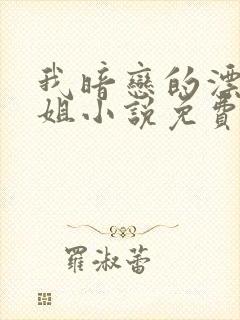 我暗戀的漂
姐小說免費
羅淑蕾